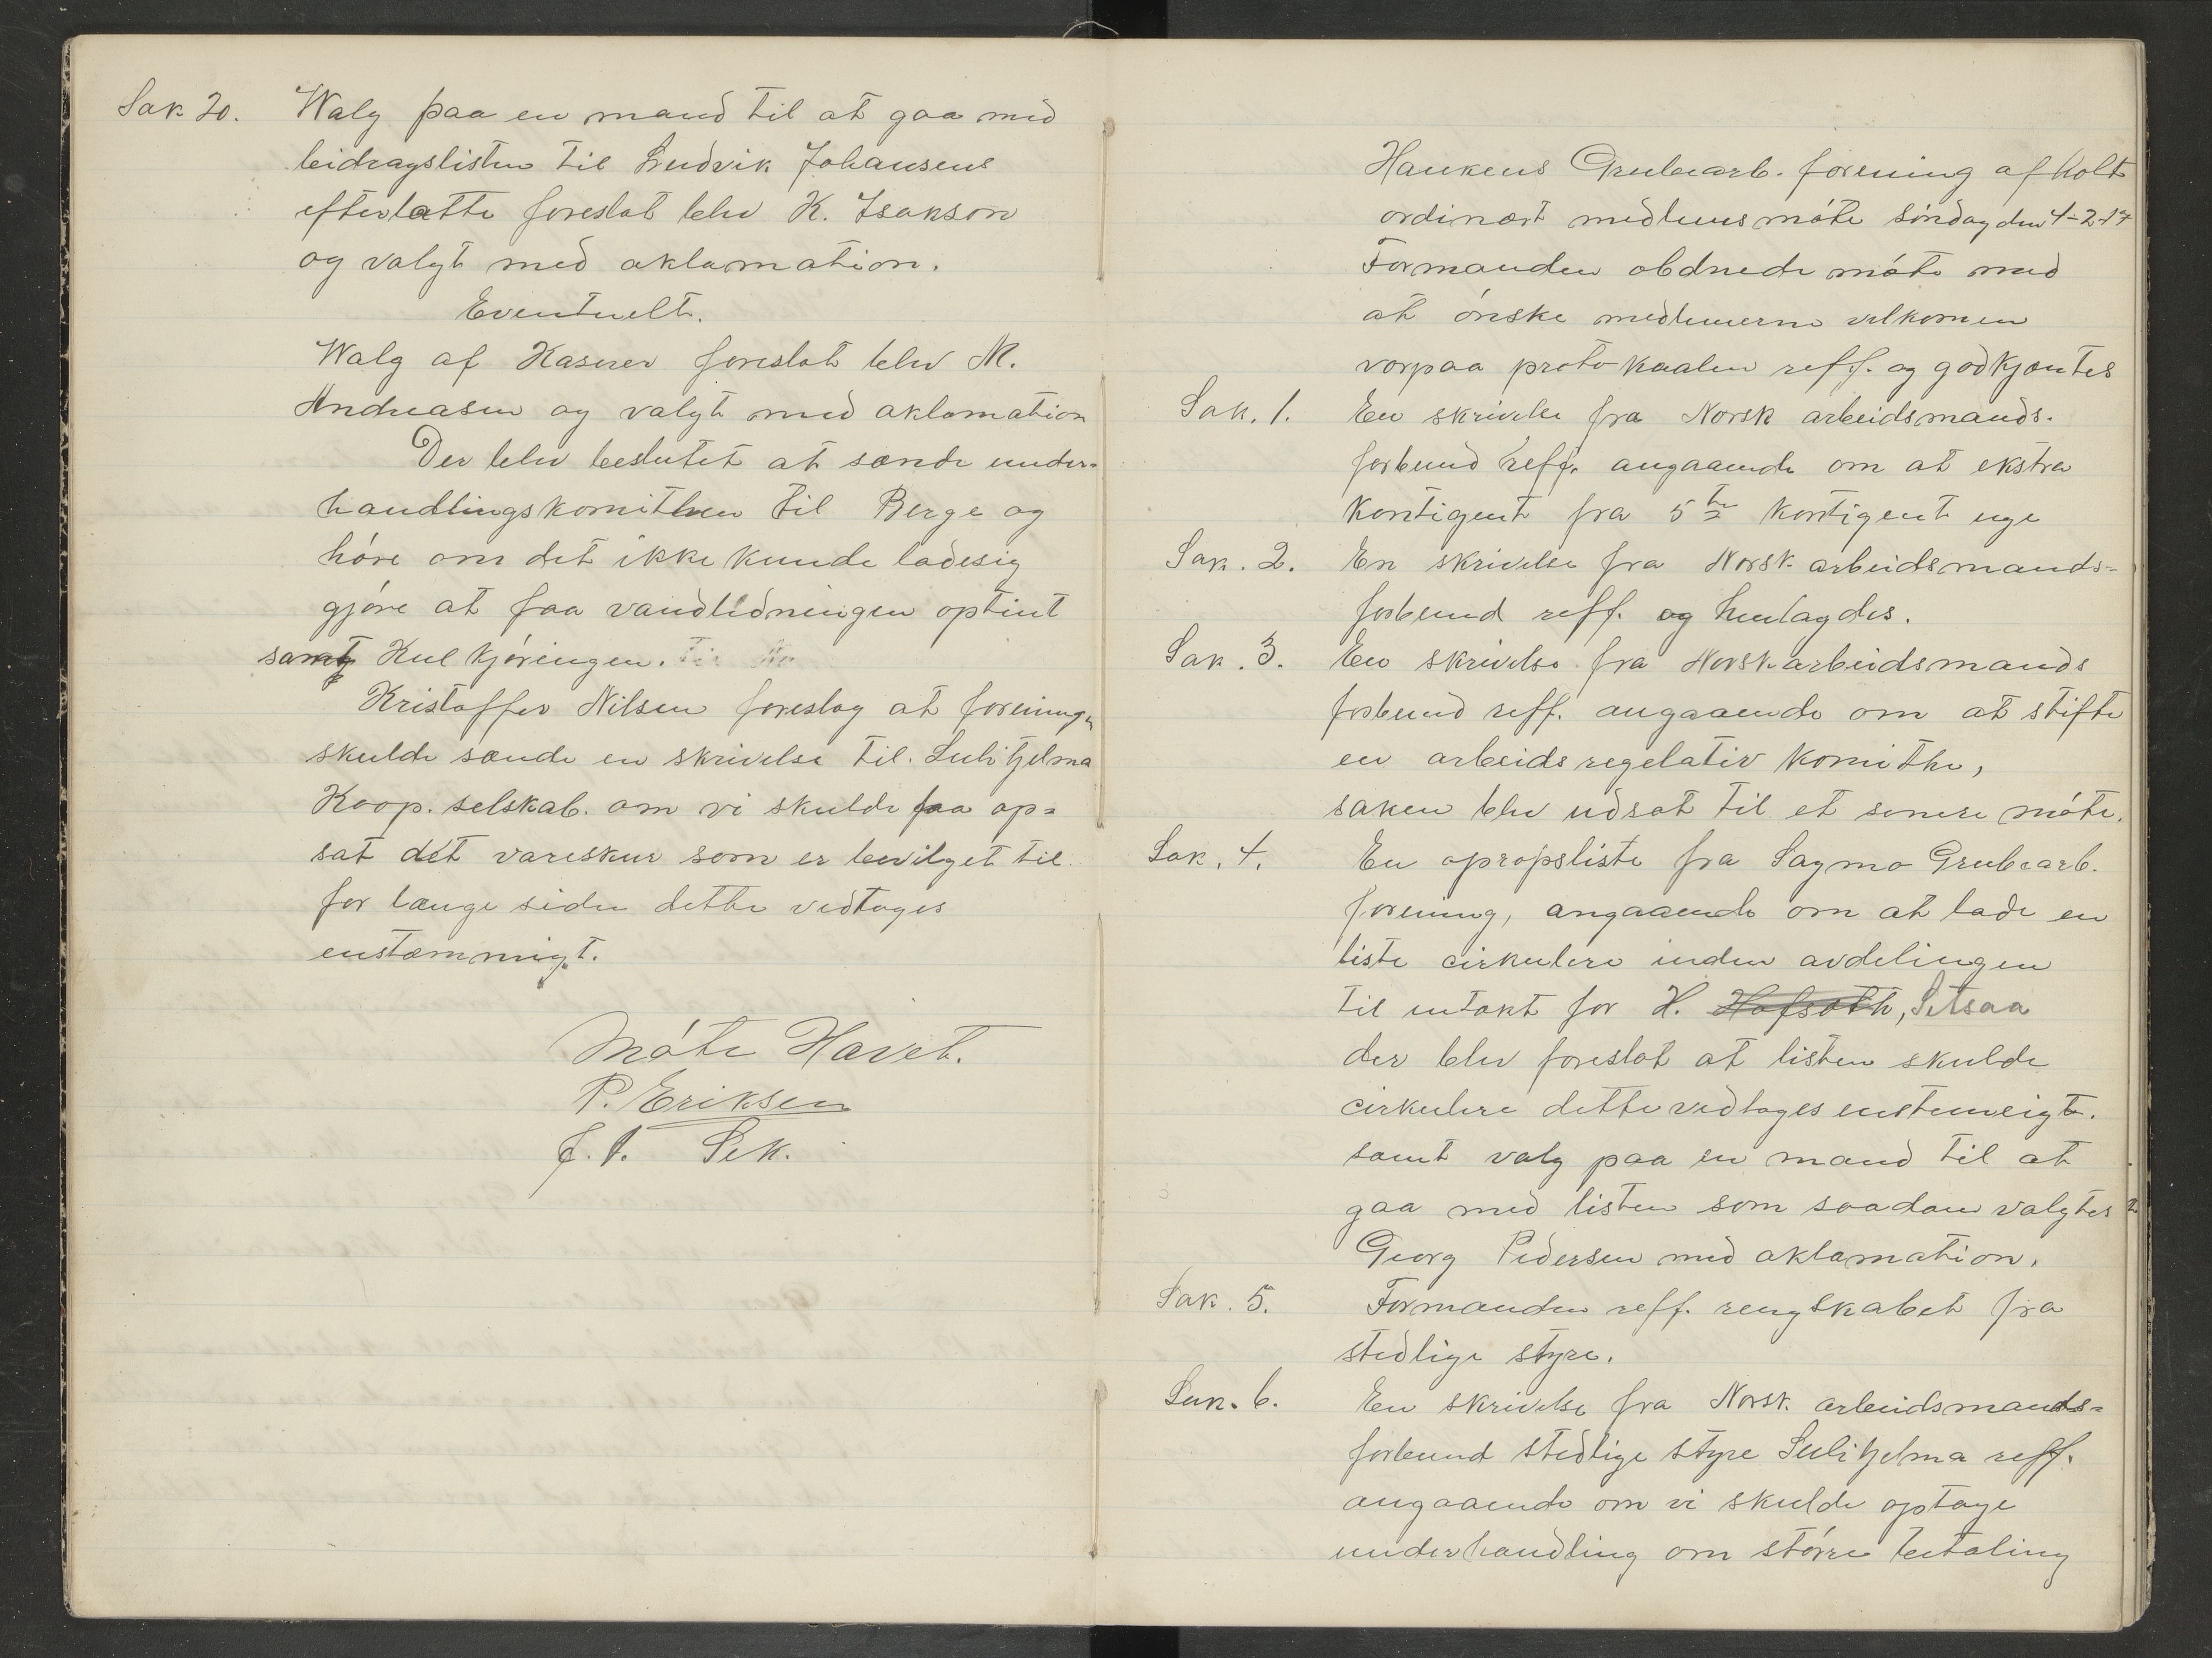 Sak 20. Walg paa en mand til at gaa med
beidragslisten til Ludvik Johansens
efterlatte foreslat blev K. Isakson
og valgt med aklamation.
Eventuelt.
Walg af Kaserer foreslat blev M.
Andreasen og valgt med aklamation
Der blev beslutet at sende under-
handlingskomitheen til Berge og
høre om det ikke kunde ladesig
gjøre at faa vandledningen optint
samt Kul kjøringen.
Kristoffer Nilsen foreslog at foreningen
skulde sende en skrivelse til. Sulitjelma
Koop. selskab. om vi skulde faa op=
sat det vareskur som er bevilget til
for længe siden dette vedtoges
enstemmigt.
Møte Hævet.
P. Eriksen
f. t. Sek.
Hankens Grubearb. forening af holt
ordinært medlemsmøte søndag den 4-2-17
Formanden obdnede møte med
at ønske medlemerne velkomen
vorpaa protokaalen reff. og godkjentes
Sak. 1. En skrivelse fra Norsk arbeidsmands.
forbund reff. angaaende om at ekstra
Kontigent fra 5te Kontigent uge
Sak. 2. En skrivelse fra Norsk arbeidsmands=
forbund reff. og henlagdes.
Sak. 3. En skrivelse fra Norsk arbeidsmands
forbund reff. angaaende om at stifte
en arbeids regelativ komithe,
saken blev udsat til et senere møte.
Sak. 4. En opropsliste fra Sagmo Grubearb.
forening, angaaende om at lade en
liste cirkulere inden avdelingen
til intækt for H. Hofsøth, Setsaa
der blev foreslat at listen skulde
cirkulere dette vedtoges enstemigt.
samt valg paa en mand til at
gaa med listen som saadan valgtes
Georg Pedersen med aklamation.
Sak. 5. Formanden reff. rengskabet fra
stedlige styre.
Sak. 6. En skrivelse fra Norsk. arbeidsmands=
forbund stedlige styre Sulitjelma reff.
angaaende om vi skulde optage
underhandling om større betaling